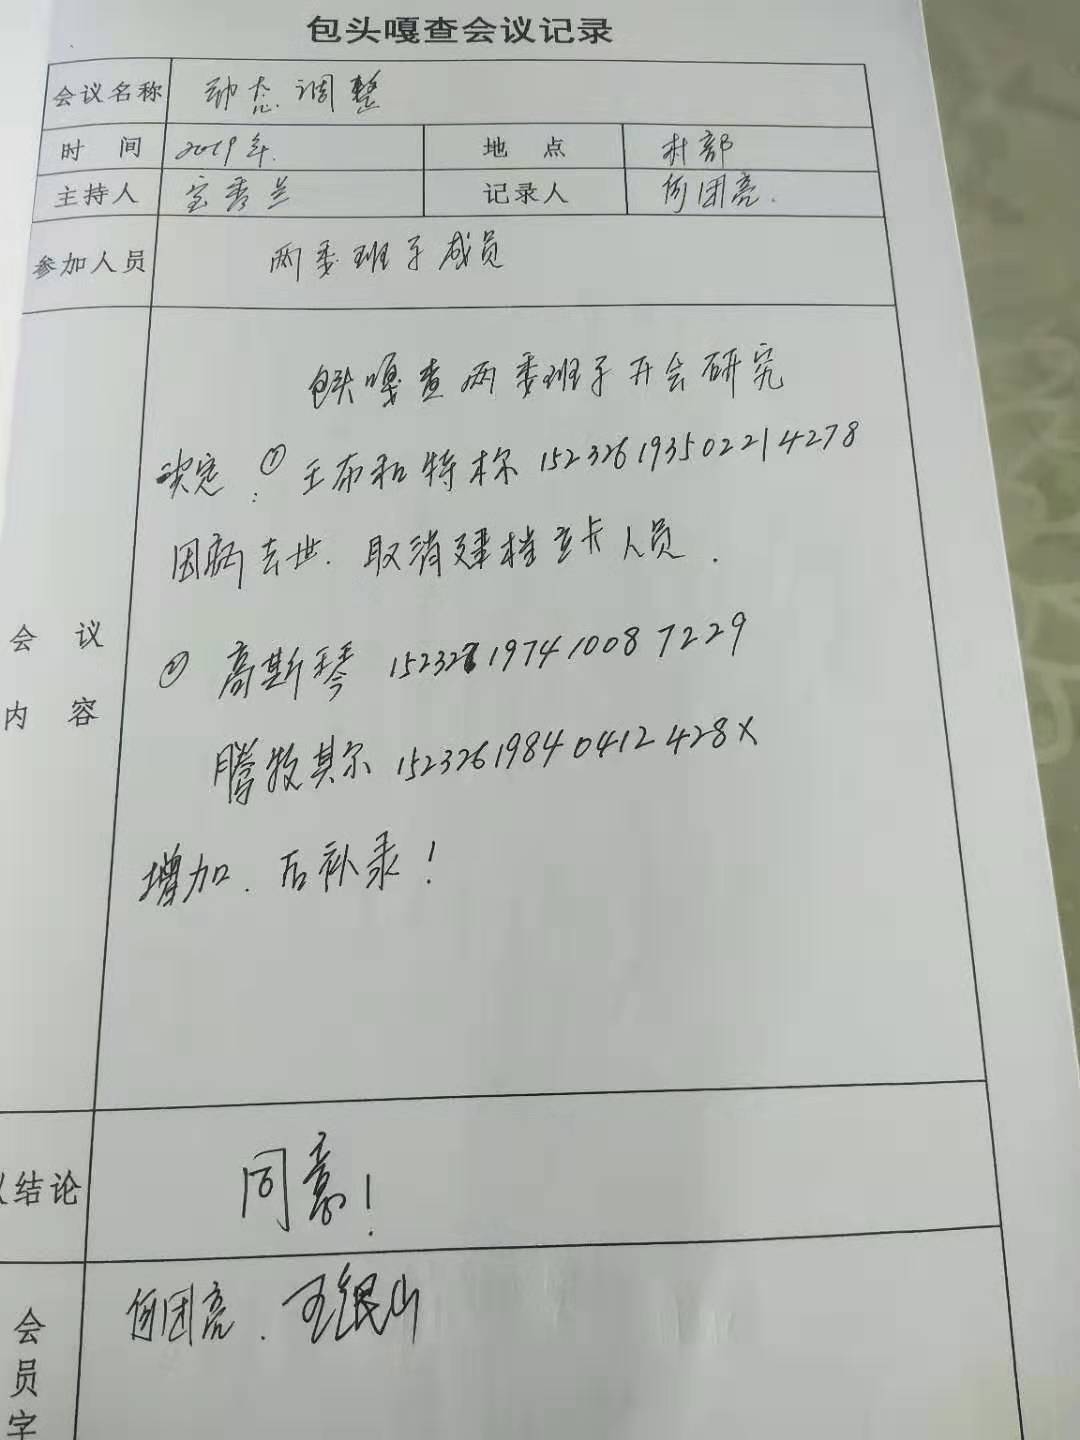 包头嘎查会议记录
会议名称 动态调整
时 间 2019年. 地 点 村部
主持人 宝秀兰 记录人 何团亮.
参加人员 两委班子成员
包头嘎查两委班子开会研究
决定：① 王布和特木尔 152326193502214278
因病去世. 取消建档立卡人员.
会 议
内 容
② 高斯琴 152327197410087229
腾牧其尔 15232619840412428X
增加. 后补录！
结论 同意！
何团亮. 王银山
会
员
字